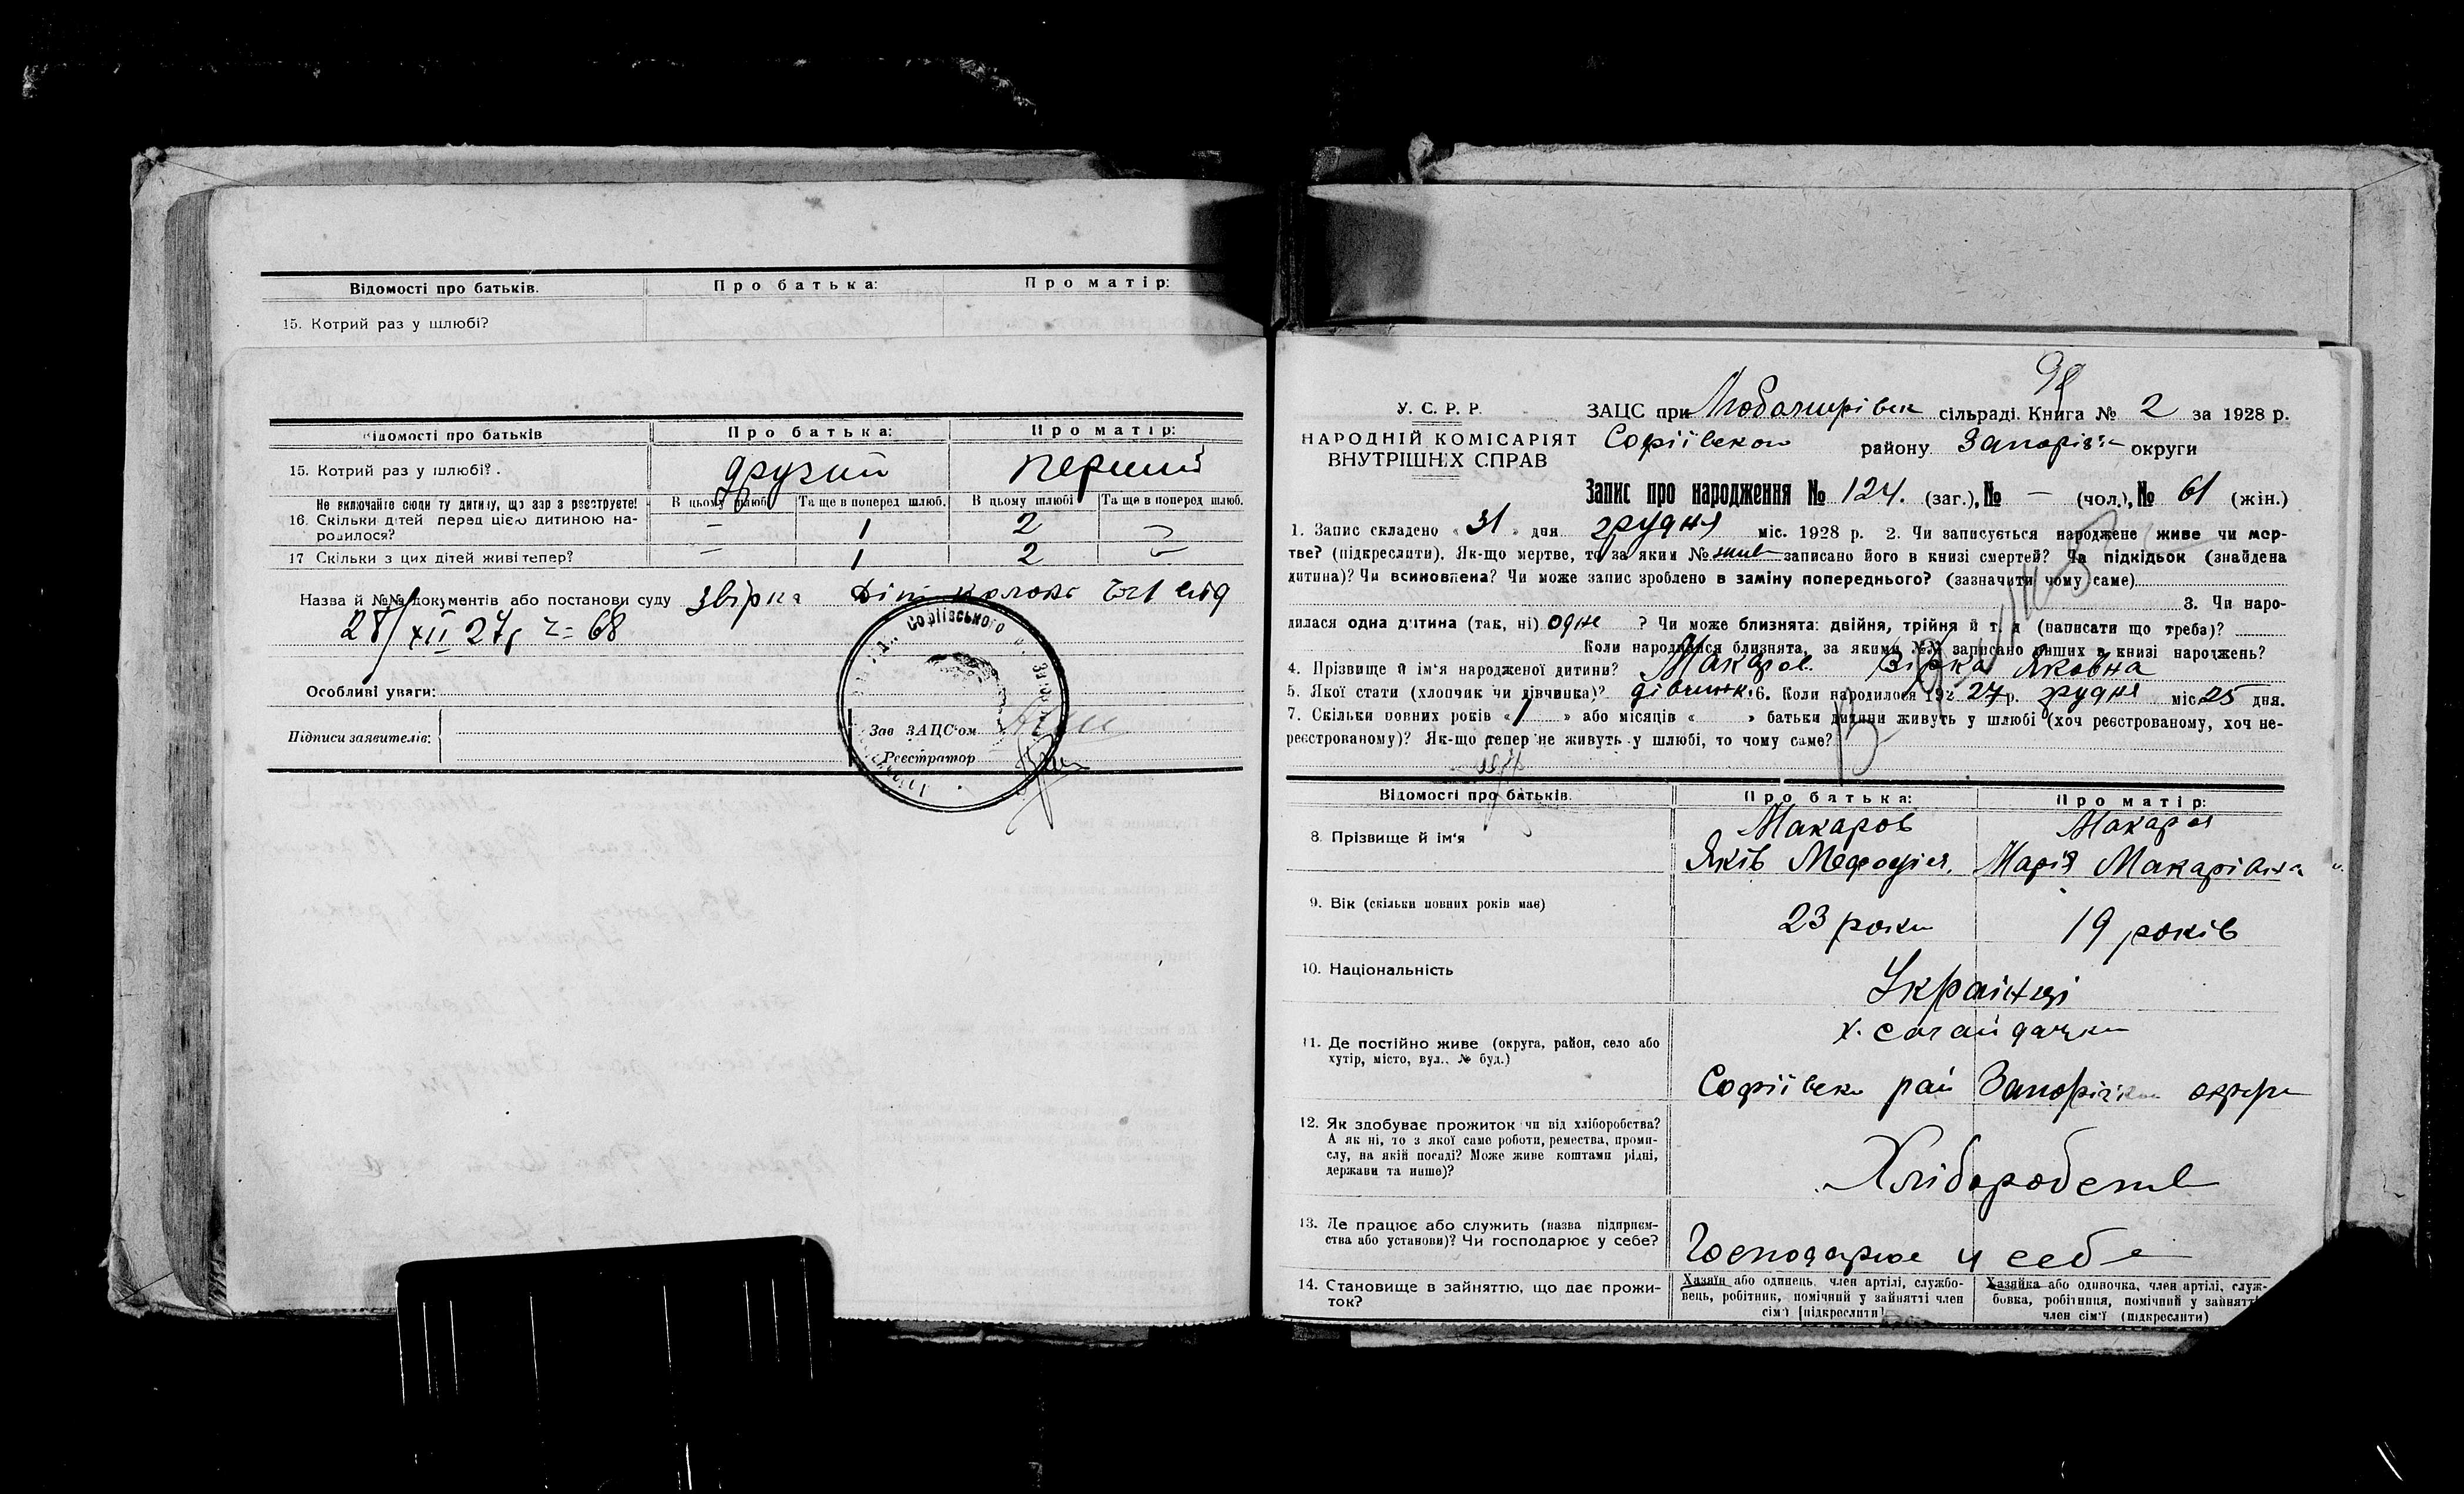 Відомості про батьків.
Про батька:
Про матір:
15. Котрий раз у шлюбі?
Відомості про батьків
Про батька:
Про матір:
15. Котрий раз у шлюбі?
другий
перший
Не включайте сюди ту дитину, що зараз реєструєте!
В цьому шлюбі
Та ще в поперед шлюб.
В цьому шлюбі
Та ще в поперед шлюб.
16. Скільки дітей перед цією дитиною на-
родилося?
–
1
2
17 Скільки з цих дітей живі тепер?
–
1
2
Назва й №№ документів або постанови суду
28/XII 27р ч= 68
Особливі уваги:
Підписи заявителів:
Зав ЗАЦС'ом
Реєстратор
98
У. С. Р. Р.
НАРОДНІЙ КОМІСАРІЯТ
ВНУТРІШНІХ СПРАВ
ЗАЦС при Любомирівск сільраді. Книга № 2 за 1928 р.
Софіївском району Запоріз округи
Запис про народження № 124. (заг.), № – (чол.), № 61 (жін.)
1. Запис складено « 31 » дня грудня міс. 1928 р. 2. Чи записується народжене живе чи мер-
тве? (підкреслити). Як-що мертве, то за яким № записано його в книзі смертей? Чи підкідьок (знайдена
дитина)? Чи всиновлена? Чи може запис зроблено в заміну попереднього? (зазначити чому саме)
3. Чи наро-
дилася одна дитина (так, ні) одне ? Чи може близнята: двійня, трійня й т. д (написати що треба)?
Коли народилися близнята, за якими №№ записано инших в книзі народжень?
4. Прізвище й ім'я народженої дитини? Макаров. Вірка Яковна
5. Якої стати (хлопчик чи дівчинка)? дівчинк. 6. Коли народилося 192 27 р. грудня міс 25 дня.
7. Скільки повних років « 1 » або місяців « » батьки дитини живуть у шлюбі (хоч реєстрованому, хоч не-
реєстрованому)? Як-що тепер не живуть у шлюбі, то чому саме?
Відомості про батьків.
Про батька:
Про матір:
8. Прізвище й ім'я
Макаров
Яків Мефодієв.
Макаров
Марія Макарівна
9. Вік (скільки повних років має)
23 роки
19 років
10. Національність
Українці
11. Де постійно живе (округа, район, село або
хутір, місто, вул.. № буд.)
х. Сагайдачки
Софіївськ рай Запоріз округи
12. Як здобуває прожиток чи від хліборобства?
А як ні, то з якої саме роботи, ремества, проми-
слу, на якій посаді? Може живе коштами рідні,
держави та инше)?
Хліборобств
13. Де працює або служить (назва підприєм-
ства або установи)? Чи господарює у себе?
Господарює у себе
14. Становище в зайняттю, що дає прожи-
ток?
Хазяїн або одинець, член артілі, службо-
вець, робітник, помічний у зайнятті член
сім'ї [підкреслити]
Хазяйка або одиночка, член артілі, служ-
бовка, робітниця, помічний у зайнятті
член сім'ї (підкреслити)